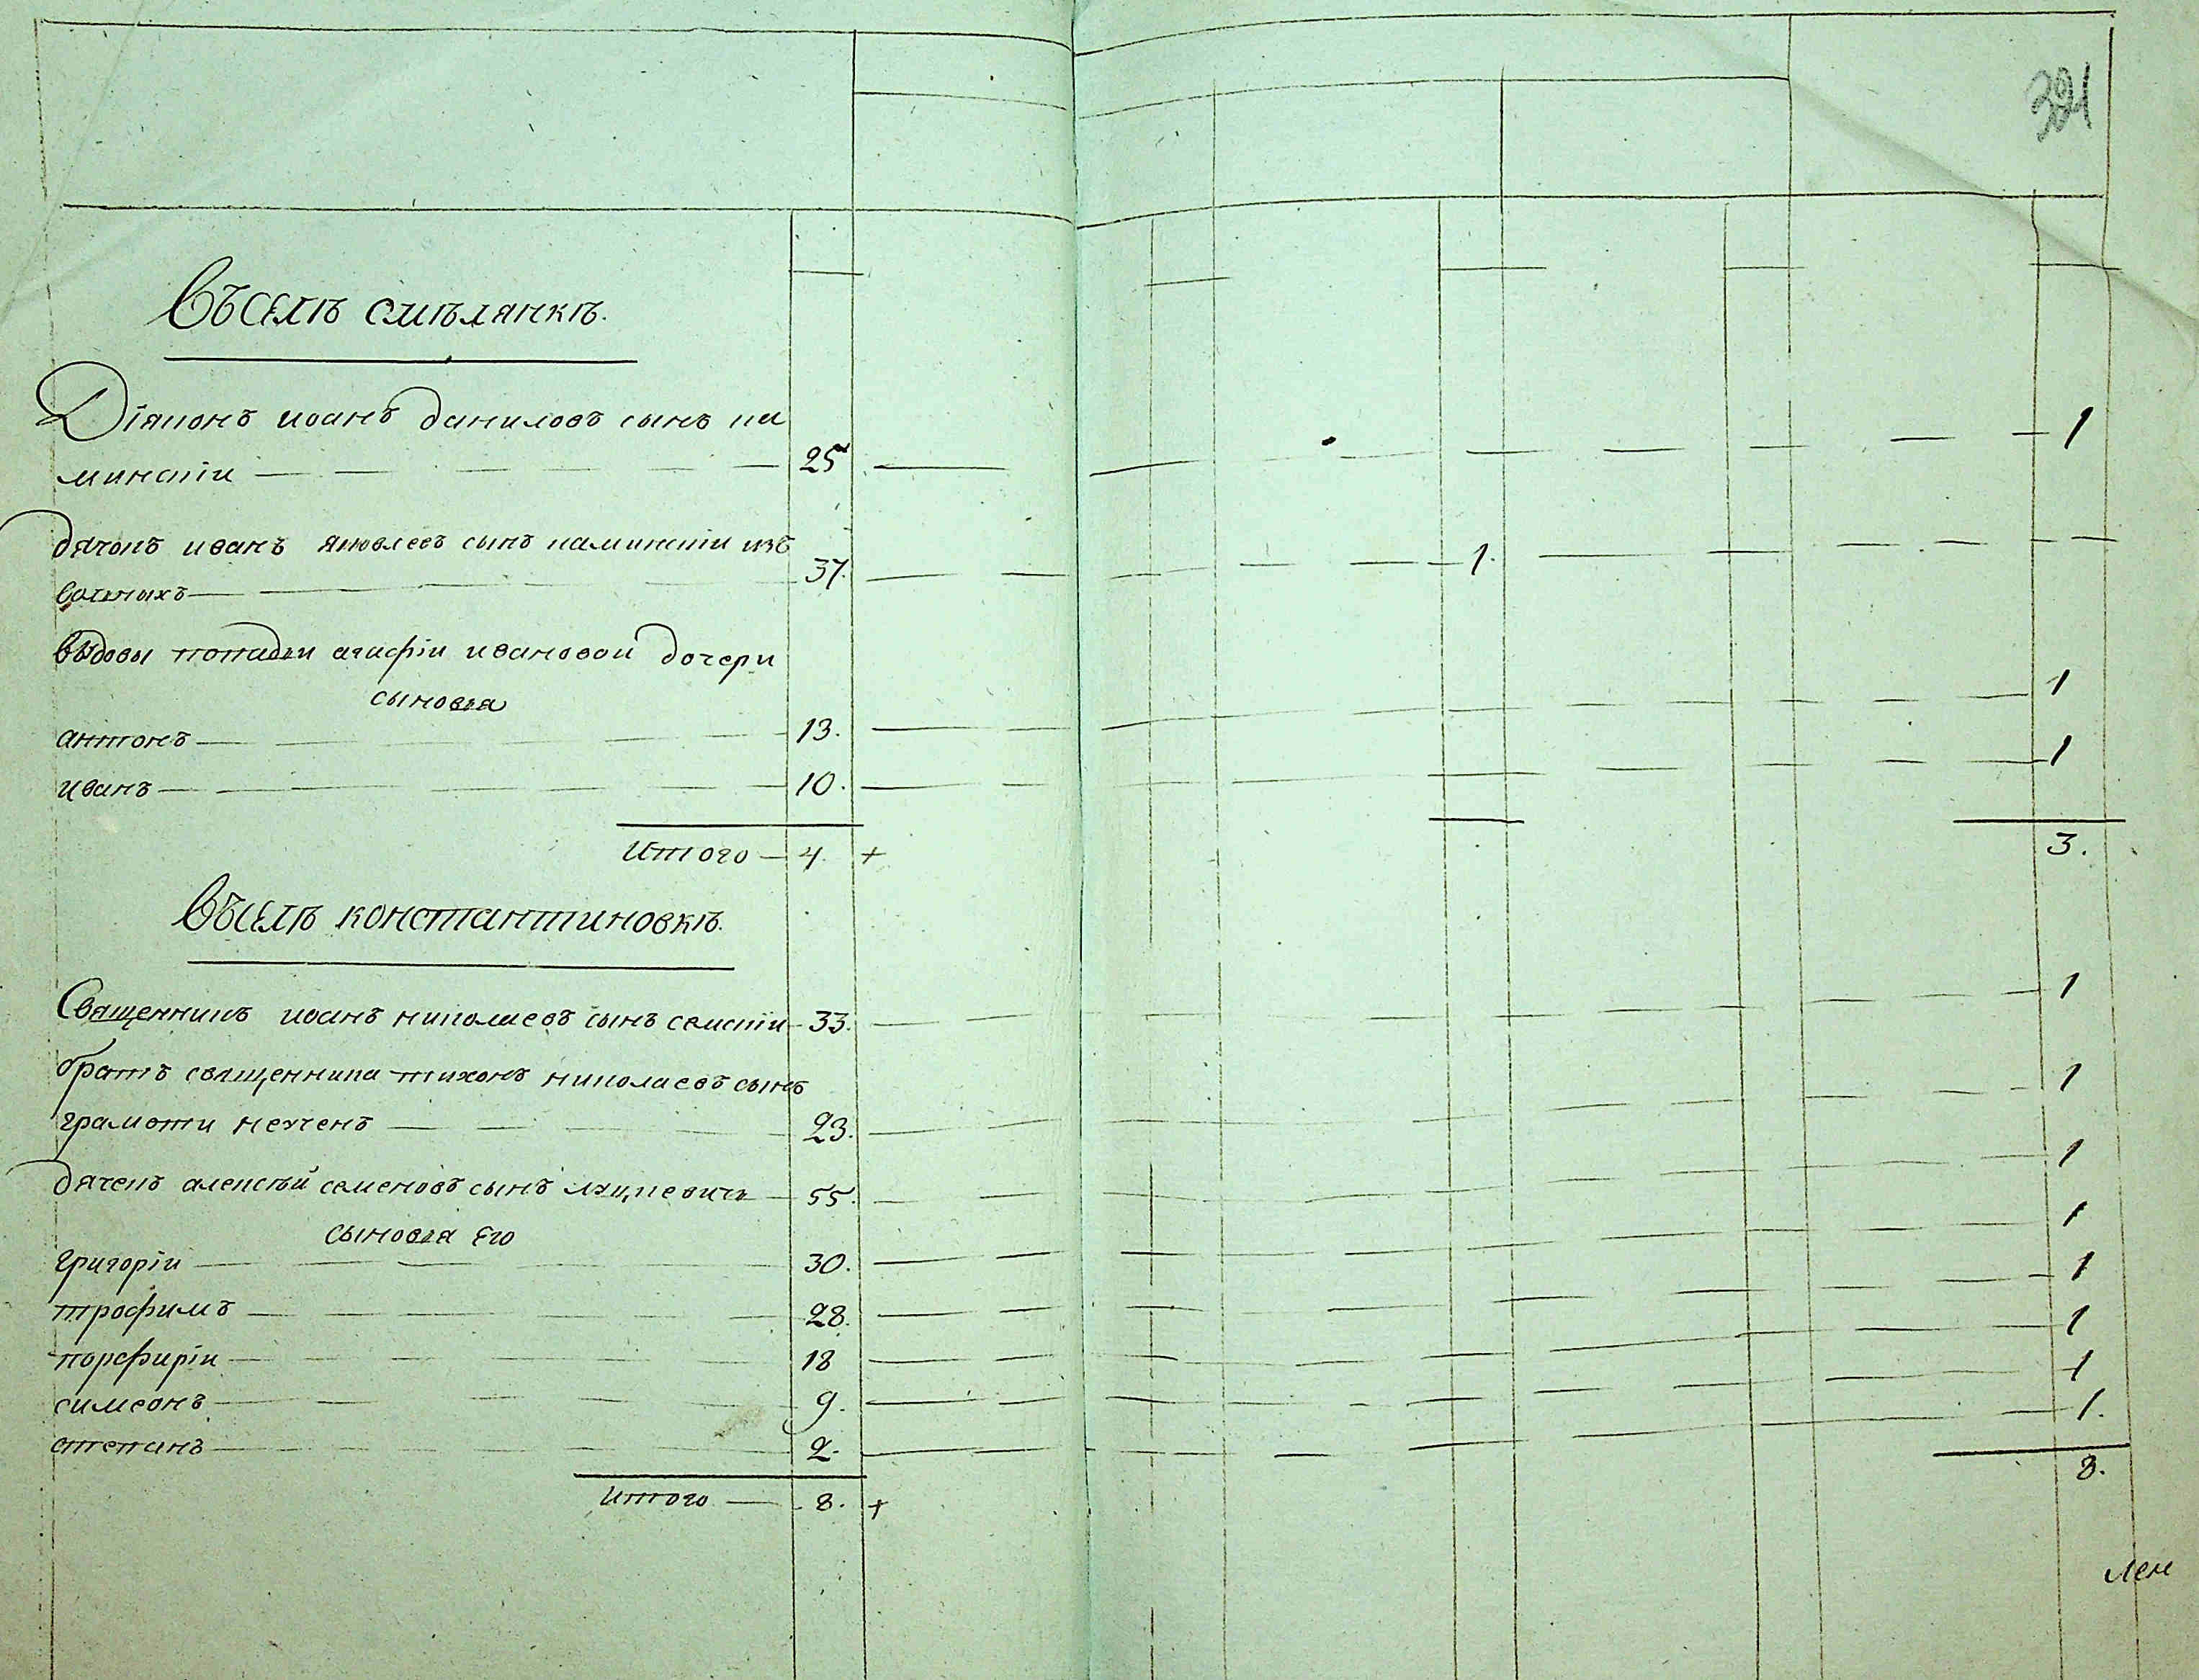 321
Въселѣ смѣлянкѣ.
Діяконъ иоанъ даниловъ сынъ ка
минскіи — 25 — 1
дячокъ иванъ яковлевъ сынъ каминскіи изъ
вольныхъ — 37. — 1.
вдовы попадьи агафіи ивановои дочери
сыновья
антонъ — 13. — 1
иванъ — 10. — 1
Итого — 4. + 3.
Въселѣ константиновкѣ.
Священникъ иоанъ николаевъ сынъ — 33. — 1
братъ священника тихонъ николаевъ сынъ
грамоти неученъ — 23. — 1
дяченъ алексѣй семеновъ сынъ — 55. — 1
сыновья Его
григоріи — 30. — 1
трофимъ — 28. — 1
порфиріи — 18 — 1
симеонъ — 9. — 1
степанъ — 2. — 1.
Итого — 8. + 8.